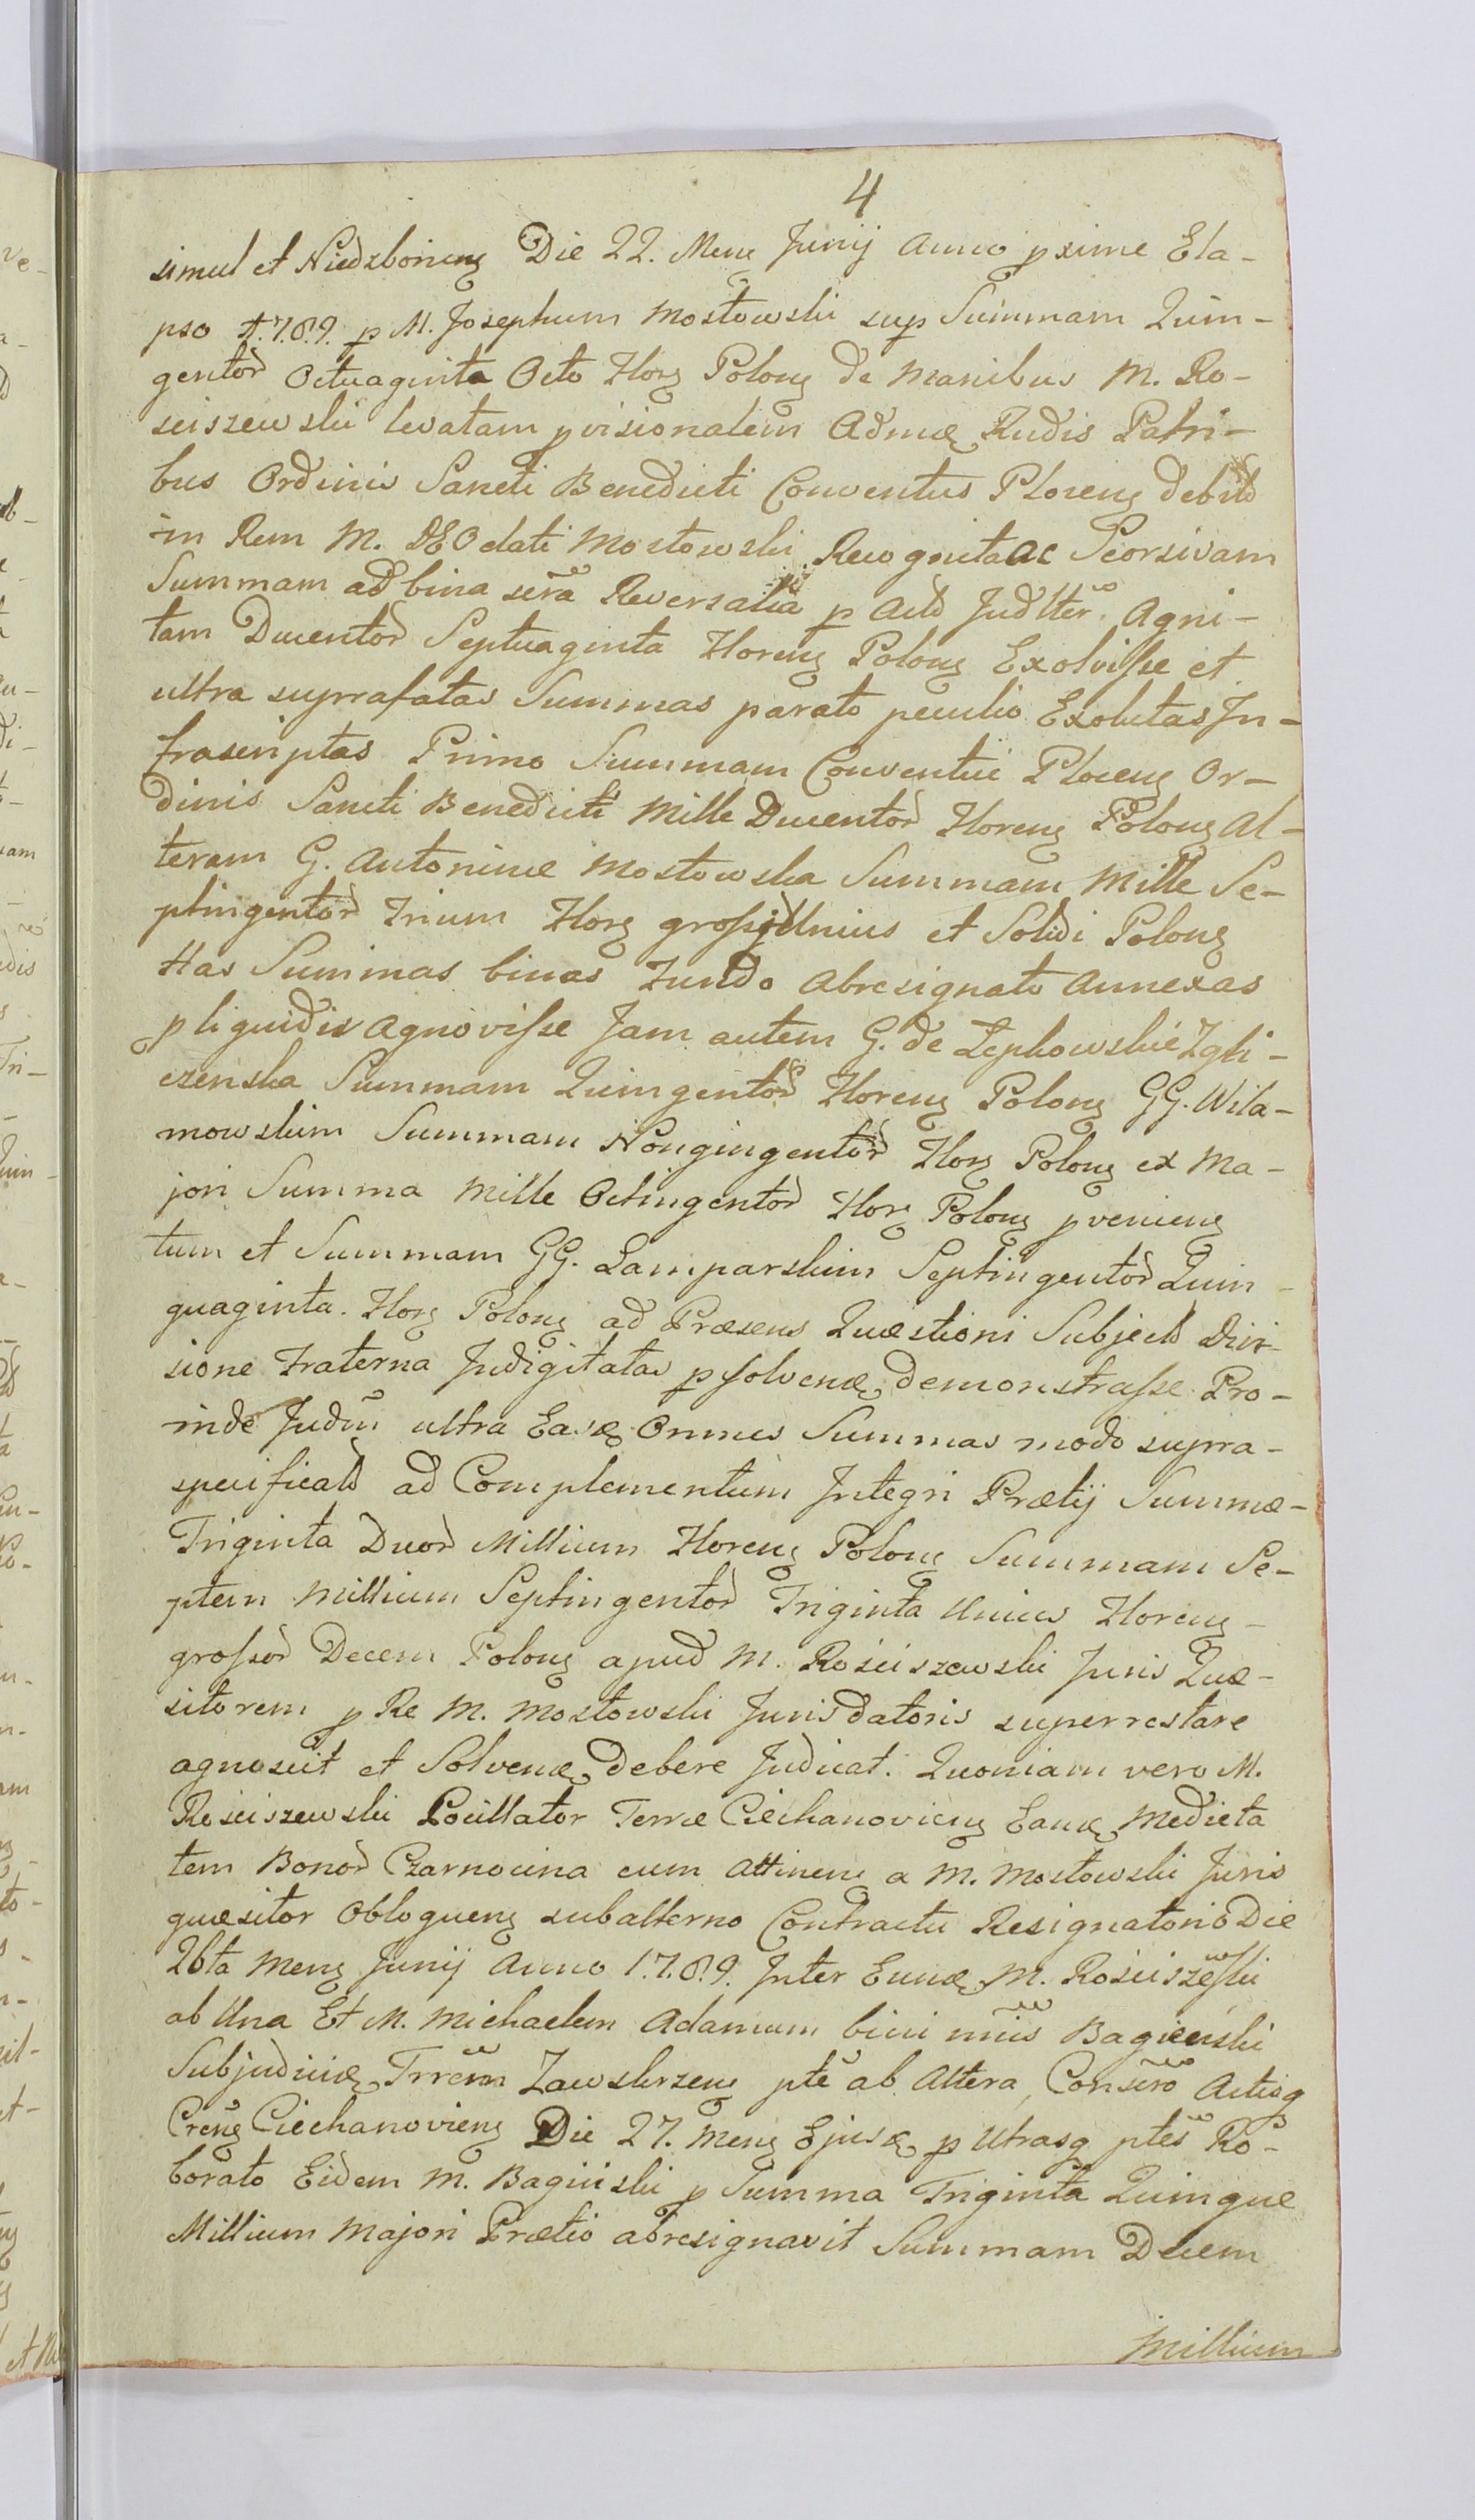 4
simul et Niedzboriens Die 22. Mens Junij Anno pxime Ela-
pso 1.7.8.9. p M. Josephum Mostowski sup Summam Quin-
gentor Octuaginta Octo Flor Polon de Manibus M. Ro-
sciszewski levatam pvisionalem Admae Rudis Patri-
bus Ordinis Sancti Benedicti Conventus Plocens debit
in Rem M. DEOdati Mostowski Recognita ac Seorsivam
Summam ad bina sera Reversalia p Act Judlter Agni-
tam Ducentor Septuaginta Floren Polon Exolvisse et
ultra suprafatas Summas parato peculio Exolutas In-
frascriptas Primo Summam Conventui Plocens Or-
dinis Sancti Benedicti Mille Ducentor Floren Polon Al-
teram G. Antoninae Mostowska Summam Mille Se-
ptingentor Trium Flor grossj Unius et Solidi Polon
Has Summas binas Fundo Abresignato Annexas
p liquidis Agnovisse Jam autem G. de Lepkowskie Zgli-
czenska Summam Quingentor Floren Polon GG. Wila-
mowskim Summam Nongingentor Flor Polon ex Ma-
jori Summa Mille Octingentor Flor Polon pveniens
tum et Summam GG. Lamparskim Septingentor Quin-
quaginta. Flor Polon ad Praesens Quaestioni Subject Divi-
sione Fraterna Indigitatas psolvend demonstrasse Pro-
inde Judm ultra Easd Omnes Summas modo supra-
specificat ad Complementum Integri Praetij Summae-
Triginta Duor Millium Floren Polon Summam Se-
ptem Millium Septingentor Triginta Unius Floren-
grossor Decem Polon apud M. Rosciszewski Juris Quae-
sitorem p Re M. Mostowski Jurisdatoris superrestare
agnoscit et Solvend debere Judicat. Quoniam vero M.
Rosciszewski Pocillator Terrae Ciechanoviens Eand Medieta
tem Bonor Czarnocina cum Attinens a M. Mostowski Juris
quaesitor Obloquens subalterno Contractu Resignatorio Die
26ta Mens Junij Anno 1.7.8.9. Inter Eund M. Rosciszewski
ab Una Et M. Michaelem Adamum bini nnis Bagienski
Subjudicem Trrem Zawskrzens pte ab Altera, Conscro Actisq
Crens Ciechanoviens Die 27. Mens Ejusd p Utrasq ptes Ro-
borato Eidem M. Baginski p Summa Triginta Quinque
Millium Majori Praetio abresignavit Summam Decem
Millium